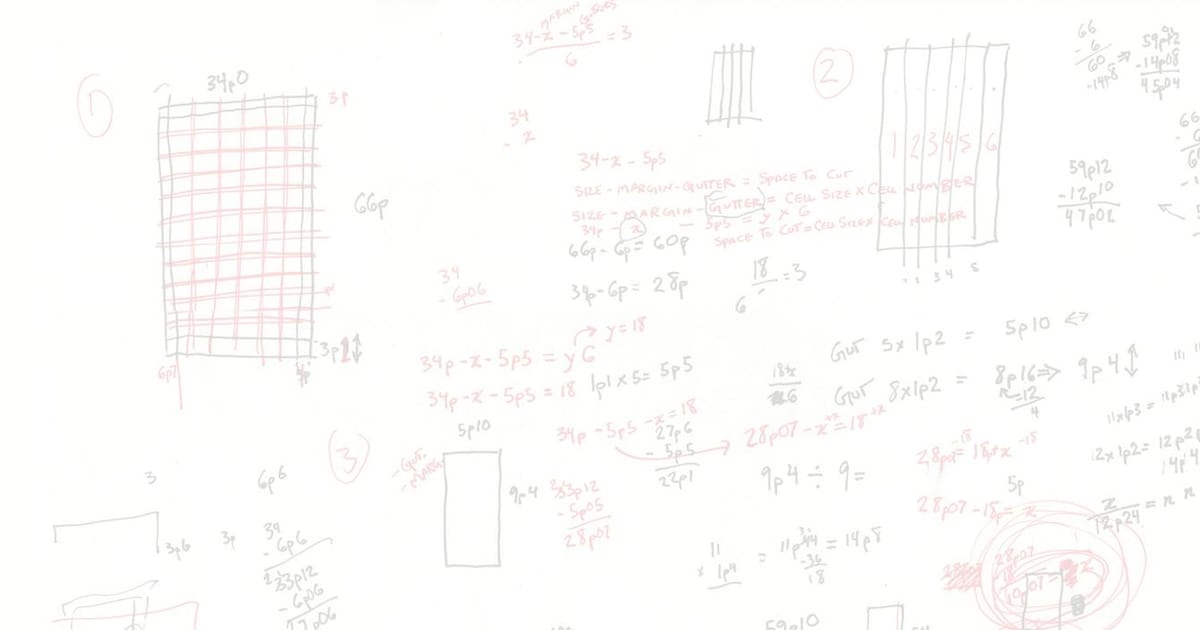 MARGIN GUTTERS
34-x-5p5 = 3
6
1
34p0
3p
66p
3p
6p7
34
- x
34-x-5p5
SIZE-MARGIN-GUTTER = SPACE TO CUT
SIZE-MARGIN-GUTTER = CELL SIZE X CELL NUMBER
34p - x - 5p5 = y x 6
SPACE TO CUT = CELL SIZE X CELL NUMBER
66p-6p= 60p
34p-6p= 28p
18
6
=3
2
1 2 3 4 5 6
3 4 5
66
- 6
60
-14p8
59p12
-14p08
45p04
59p12
-12p10
47p02
34
- 6p06
y=18
34p-x-5p5 = y6
34p-x-5p5 = 18
1p1x5= 5p5
34p-5p5-x=18
27p6
- 5p5
22p1
28p07-x+x=18+x
Gut 5x1p2 = 5p10
Gut 8x1p2 = 8p16 9p4
-12
4
28p07-18=18+x-18
28p07-18p=x
5p
9p4÷9=
11x1p3 =
12x1p2=
x
12p24
3
5p10
9p4
33p12
- 5p05
28p07
3
3p6
6p6
3p
34
- 6p6
33p12
- 6p06
27p06
11
x 1p4
= 11p44 = 14p8
-36
18
28p07
18
10p07
59p10